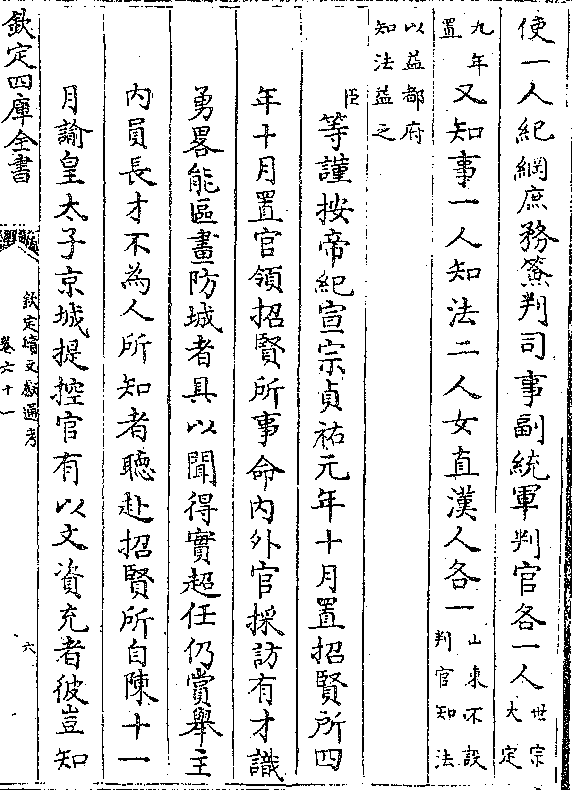 使一人紀綱庶務簽判司事副統軍判官各一人世宗大定
九年置又知事一人知法二人女直漢人各一山東不設判官知法
以益都府知法益之
臣等謹按帝紀宣宗貞祐元年十月置招賢所四
年十月置官領招賢所事命內外官採訪有才識
勇畧能區畫防城者具以聞得實超任仍賞舉主
內員長才不為人所知者聽赴招賢所自陳十一
月諭皇太子京城提控官有以文資充者彼豈知
欽定四庫全書
欽定續文獻通考
卷六十一
六